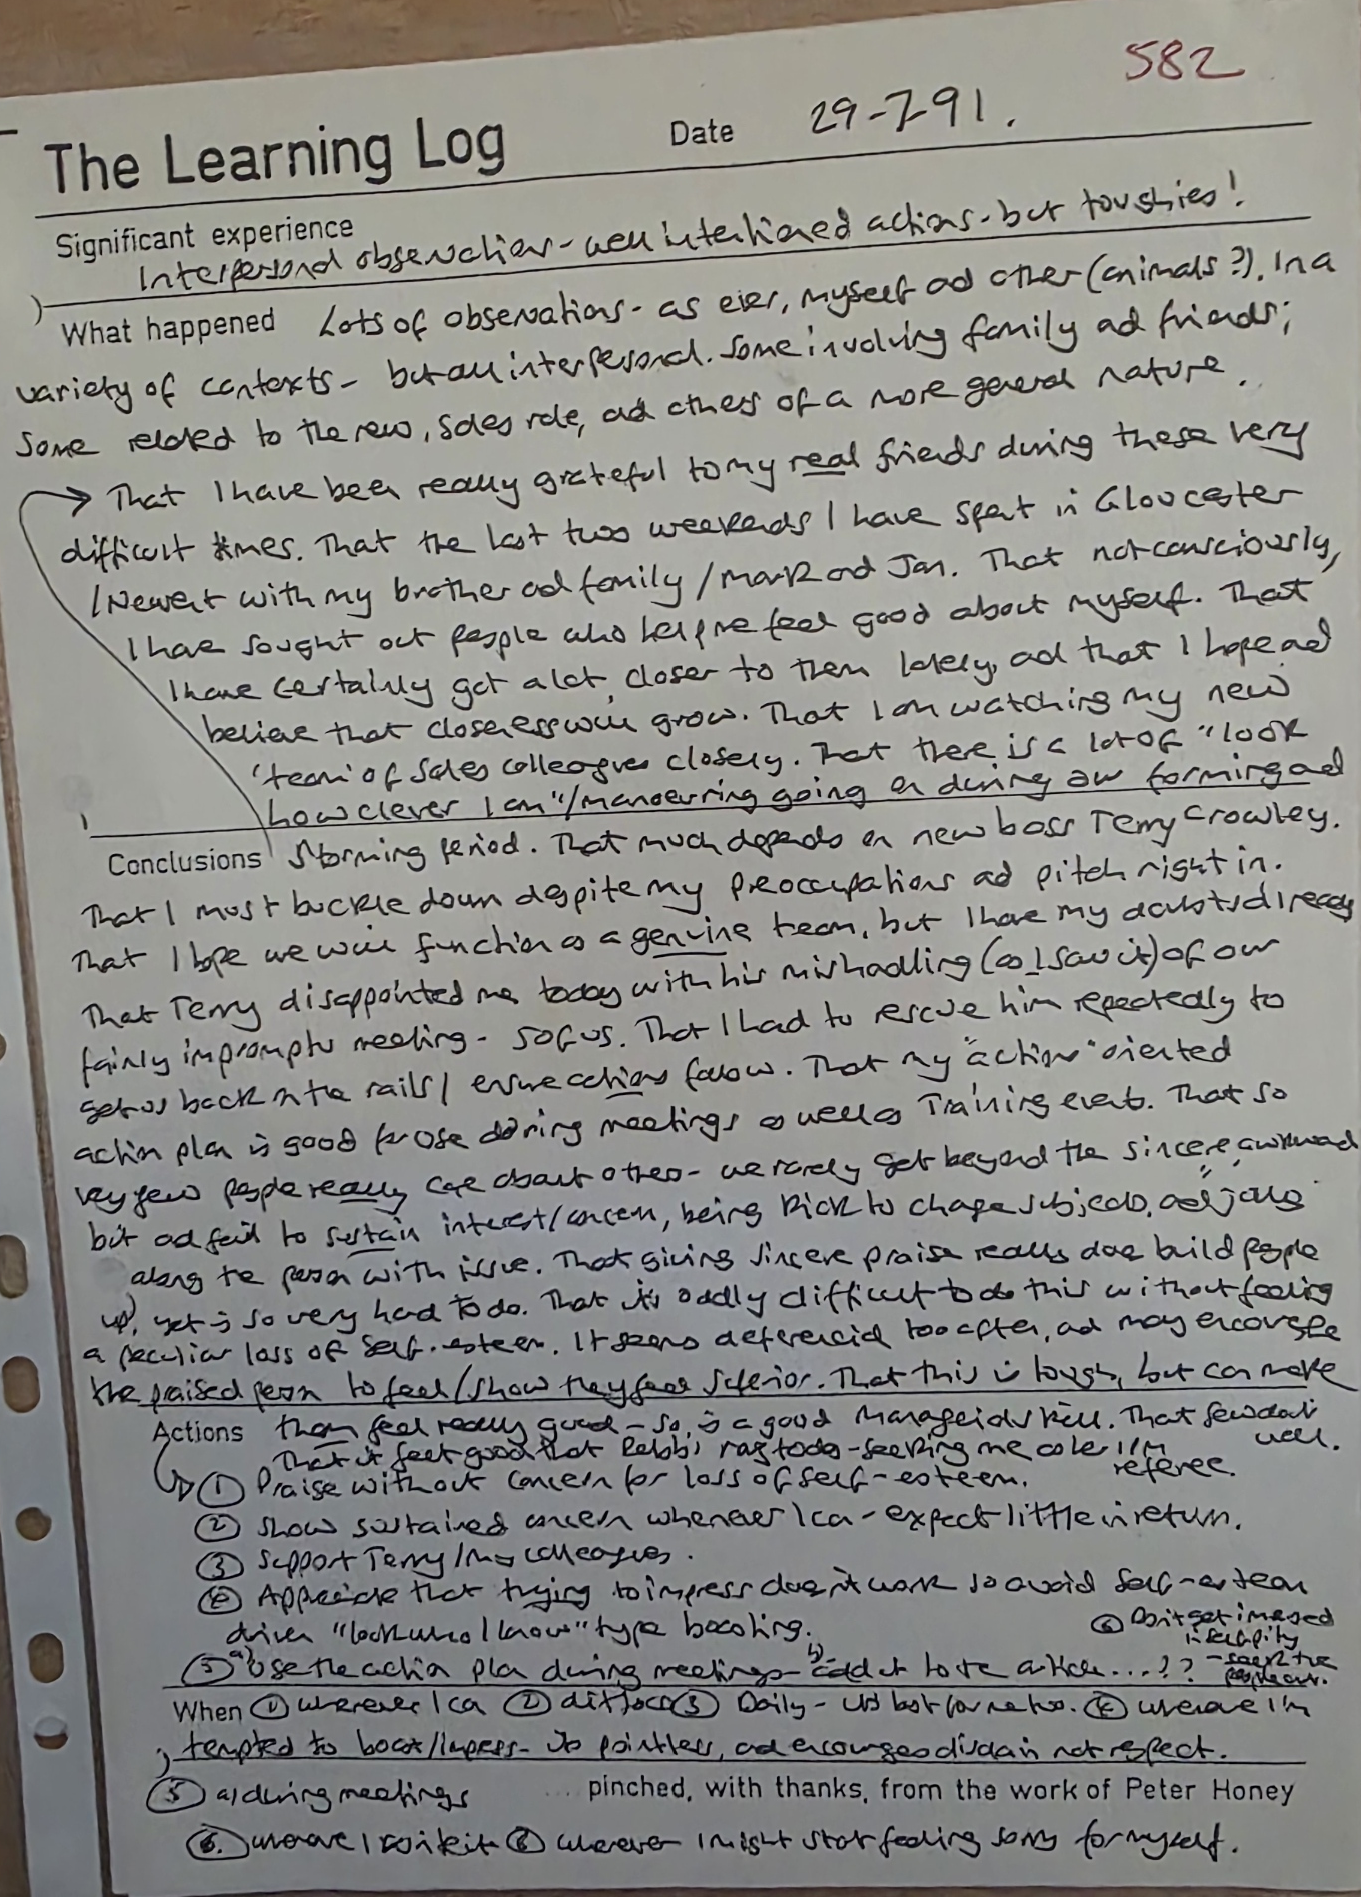 582
The Learning Log Date 29-7-91.
Significant experience
Interpersonal observations - well intentioned actions - but toughies!
What happened Lots of observations - as ever, myself ad other (animals?). In a
variety of contexts - but all interpersonal. Some involving family ad friends;
some related to the new, sales role, ad others of a more general nature.
That I have been really grateful to my real friends during these very
difficult times. That the last two weekends I have spent in Gloucester
/Newent with my brother ad family / Mark ad Jan. That not consciously,
I have sought out people who help me feel good about myself. That
I have certainly got a lot closer to them lately, ad that I hope ad
believe that closeness will grow. That I am watching my new
'team' of sales colleagues closely. That there is a lot of "look
how clever I am"/manoeuvring going on during our forming ad
Conclusions storming period. That much depends on new boss Terry Crowley.
That I must buckle down despite my preoccupations ad pitch right in.
That I hope we will function as a genuine team, but I have my doubts already
That Terry disappointed me today with his mishadling (as I saw it) of our
fairly impromptu meeting - 5 of us. That I had to rescue him repeatedly to
get us back on the rails / ensure actions follow. That my "action" oriented
action plan is good for use during meetings as well as Training events. That so
very few people really care about others - we rarely get beyond the sincere, awkward
bit ad fail to sustain interest/concern, being quick to change subjects, ad jolly
along the person with issue. That giving sincere praise really does build people
up, yet is so very hard to do. That it's oddly difficult to do this without feeling
a peculiar loss of self-esteem. It seems deferential too often, ad may encourage
the praised person to feel/show they feel superior. That this is tough, but can make
Actions them feel really good - so, is a good Managerial skill. That few do it well.
That it feels good that Rabbi rag today - seeking me as her referee.
① Praise without concern for loss of self-esteem.
② Show sustained concern whenever I ca - expect little in return.
③ Support Terry / my colleagues.
④ Appreciate that trying to impress doesn't work so avoid self-esteem
driven "look who I know" type boasting.
⑥ Don't get immersed in self pity - seek the people out.
⑤ a) Use the action plan during meetings - b) add it to the article....??
When ① wherever I ca ② ditto ③ Daily - it's best for me too. ④ whenever I'm
tempted to boast/impress - its pointless, ad encourages disdain not respect.
⑤ a) during meetings .... pinched, with thanks, from the work of Peter Honey
wherever I might start feeling sorry for myself.